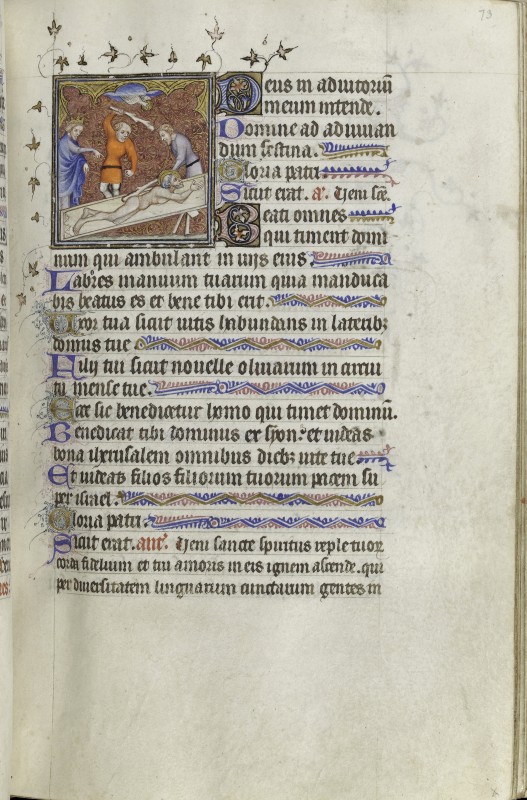 73
Deus in adiutoriū
meum intende.
Domine ad adiuuan
dum festina.
Gloria patri
Sicut erat. a. Ueni sce.
Beati omnes
qui timent domi
num qui ambulant in uijs eius
Labores manuum tuarum quia manduca
bis beatus es et bene tibi erit.
Uxor tua sicut uitis habundans in laterib;
domus tue
Filij tui sicut nouelle oliuarum in circui
tu mense tue.
Ecce sic benedicetur homo qui timet dominū.
Benedicat tibi dominus ex syon: et uideas
bona iherusalem omnibus dieb; uite tue
Et uideas filios filiorum tuorum pacem su
per israel.
Gloria patri.
Sicut erat. ant. Ueni sancte spiritus reple tuor
corda fidelium et tui amoris in eis ignem ascende. qui
per diuersitatem linguarum cunctarum gentes in